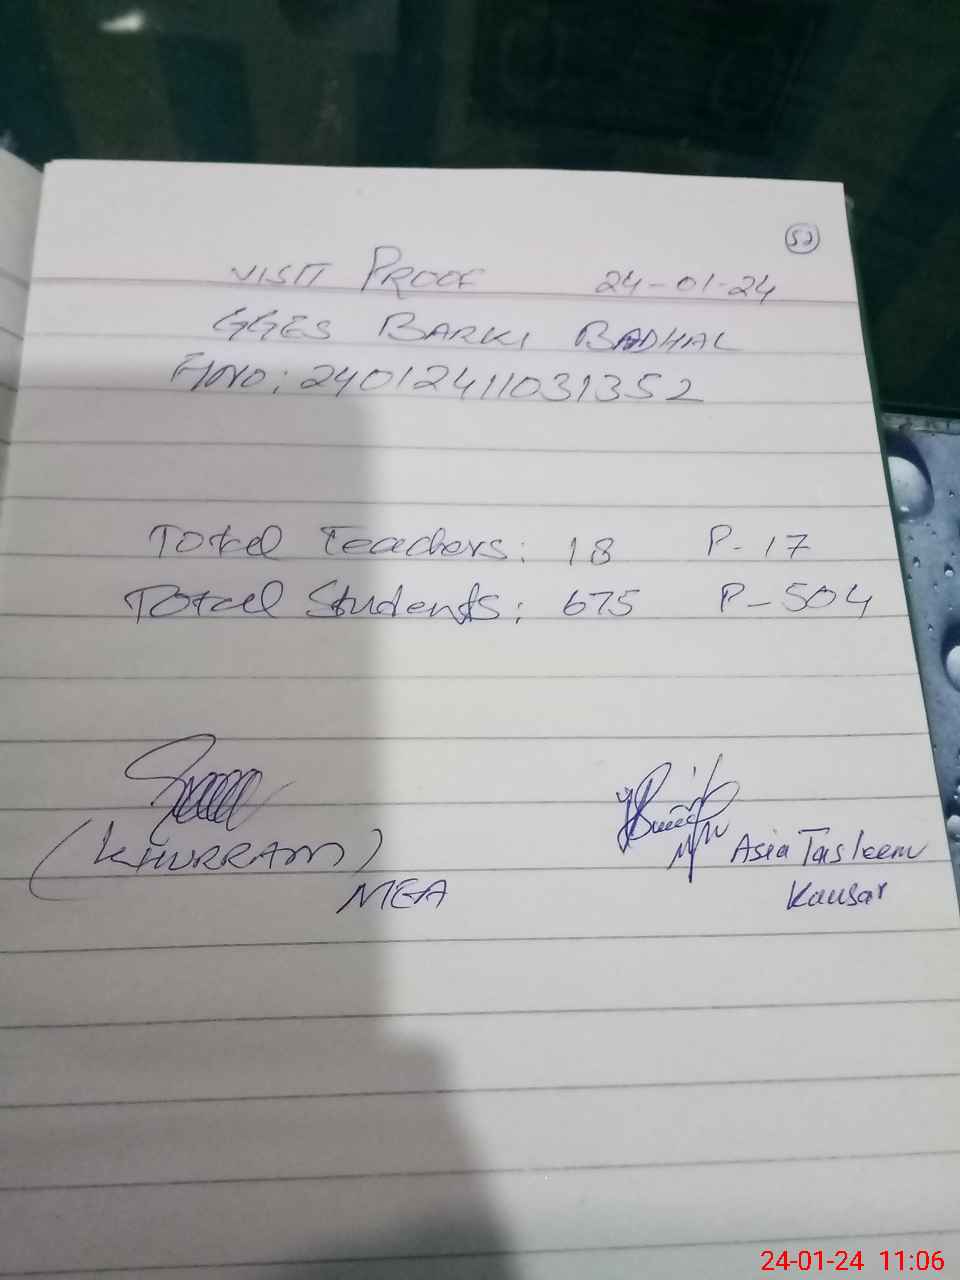 52
VISIT PROOF 24-01-24
GGES BARKI BADHAL
24012411031352
Total Teachers: 18 P-17
Total Students: 675 P-504
(KHURRAM)
MEA
Asia Tasleem
Kausar
24-01-24 11:06